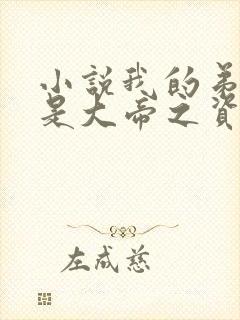 小說我的弟
是大帝之資
左成慈